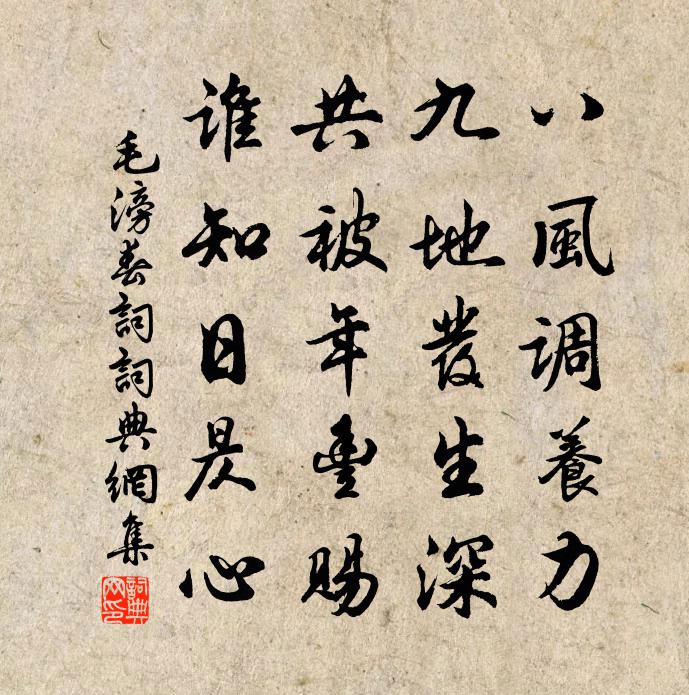 八風調養力
九地發生深
共被年豐賜
誰知日昃心
毛滂春詞詞典網集
詞典網印